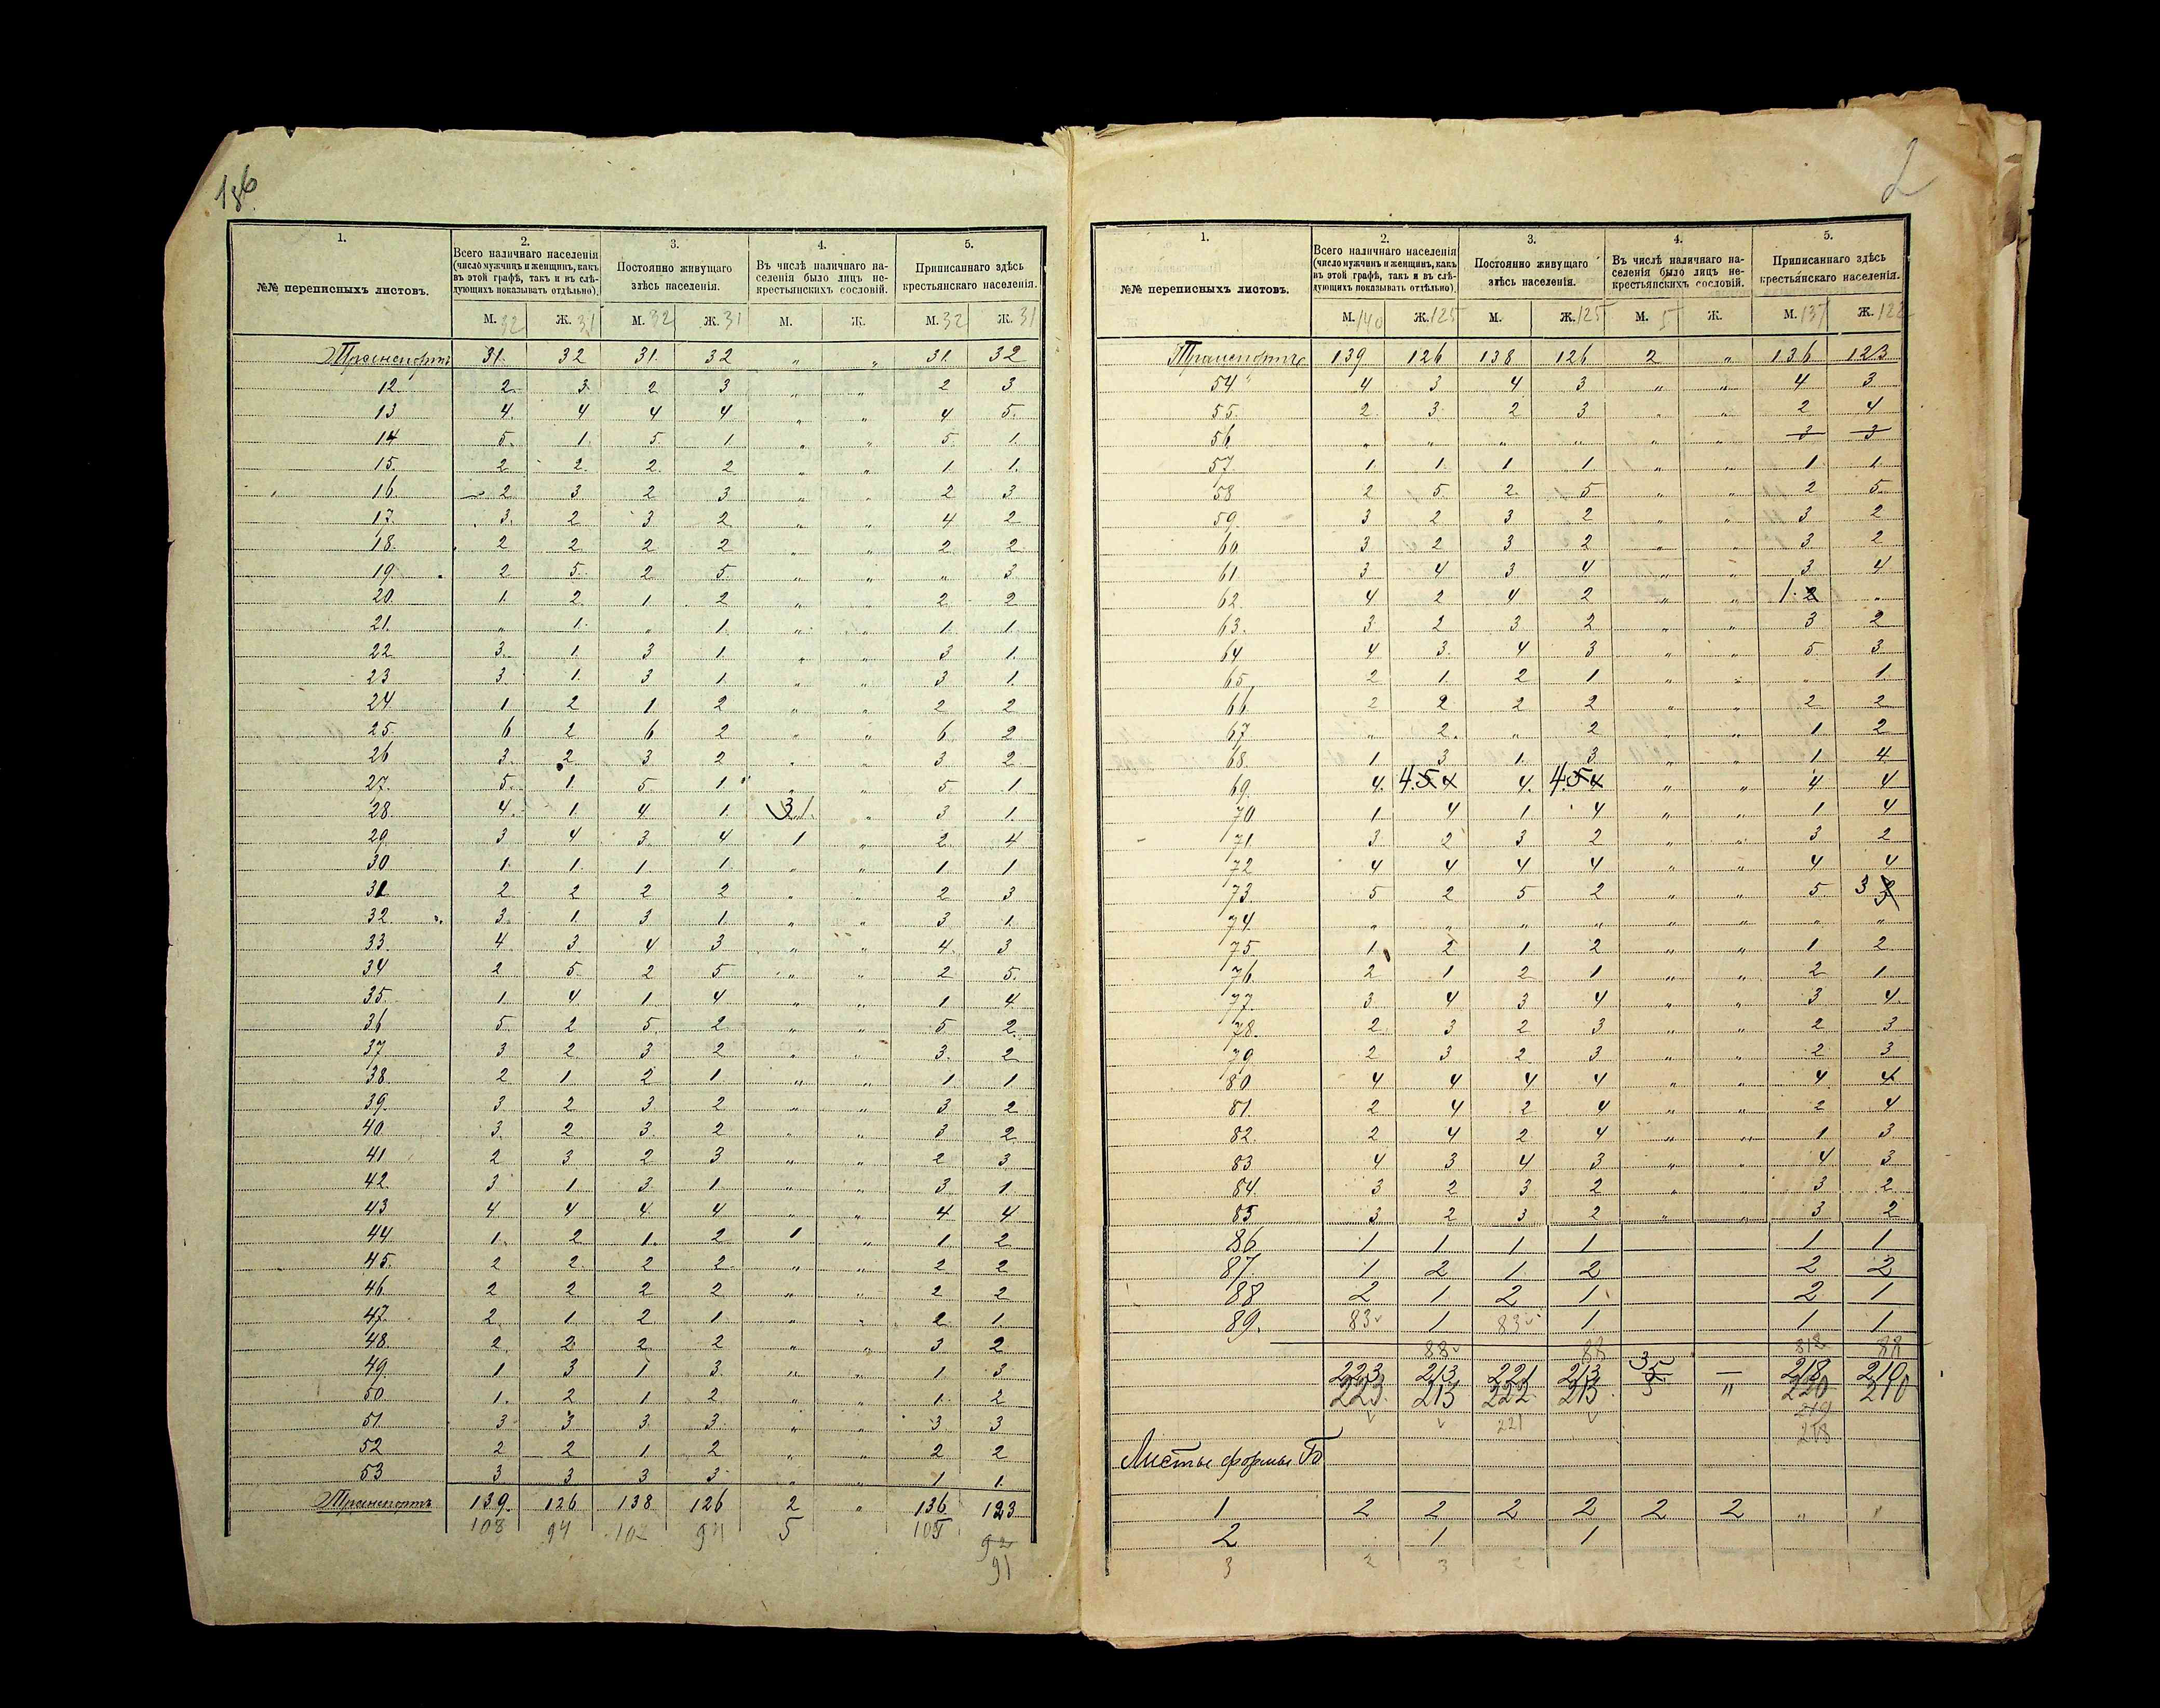 186
1. 2. 3. 4. 5.
№№ переписныхъ листовъ. Всего наличнаго населенія (число мужчинъ и женщинъ, какъ въ этой графѣ, такъ и въ слѣдующихъ показывать отдѣльно). Постоянно живущаго здѣсь населенія. Въ числѣ наличнаго населенія было лицъ некрестьянскихъ сословій. Приписаннаго здѣсь крестьянскаго населенія.
М. 32 Ж. 31 М. 32 Ж. 31 М. Ж. М. 32 Ж. 31
Транспортъ 31. 32 31. 32 „ „ 31. 32
12. 2. 3. 2 3 „ „ 2 3
13 4. 4 4 4 „ „ 4 5.
14 5. 1. 5. 1. „ „ 5. 1.
15. 2 2. 2. 2 „ „ 1. 1.
16. 2 3 2 3 „ „ 2 3
17. 3. 2 3 2 „ „ 4 2
18. 2 2 2 2 „ „ 2 2
19. 2 5. 2 5. „ „ „ 3
20. 1. 2. 1. 2 „ „ 2 2
21. „ 1. „ 1. „ „ 1. 1.
22 3. 1. 3 1. „ „ 3 1.
23 3. 1. 3 1. „ „ 3 1.
24 1 2 1. 2 „ „ 2 2
25. 6 2 6 2 „ „ 6. 2
26 3. 2 3 2 „ „ 3 2
27. 5. 1. 5 1 „ „ 5 1
28. 4. 1. 4. 1. 3 1. „ 3 1.
29. 3 4 3. 4 1 „ 2. 4
30 1. 1. 1. 1. „ „ 1 1
31 2 2 2 2 „ „ 2 3
32. 3. 1. 3 1. „ „ 3 1.
33. 4 3 4 3 „ „ 4. 3
34 2 5. 2 5 „ „ 2 5.
35. 1. 4 1. 4 „ „ 1 4
36 5. 2 5. 2. „ „ 5 2.
37 3 2 3 2 „ „ 3. 2
38. 2 1 2 1 „ „ 1. 1
39. 3. 2 3 2 „ „ 3 2
40 3. 2 3. 2 „ „ 3 2
41 2 3 2 3 „ „ 2 3
42. 3 1 3 1 „ „ 3 1
43 4 4 4 4 „ „ 4 4
44 1. 2 1. 2 1 „ 1. 2
45. 2 2 2 2 „ „ 2 2
46 2 2 2 2 „ „ 2 2
47. 2. 1. 2 1 „ „ 2 1.
48. 2. 2 2 2 „ „ 3 2
49. 1 3 1 3. „ „ 1 3
50 1. 2 1 2 „ „ 1. 2
51. 3 3 3 3. „ „ 3 3
52 2 2 1 2 „ „ 2 2
53 3 3 3 3 „ „ 1 1.
Транспортъ 139. 126 138 126 2 „ 136. 123
108 94 102 94 5 105 92
91
2
1. 2. 3. 4. 5.
№№ переписныхъ листовъ. Всего наличнаго населенія (число мужчинъ и женщинъ, какъ въ этой графѣ, такъ и въ слѣдующихъ показывать отдѣльно). Постоянно живущаго здѣсь населенія. Въ числѣ наличнаго населенія было лицъ некрестьянскихъ сословій. Приписаннаго здѣсь крестьянскаго населенія.
М. 140 Ж. 125 М. Ж. 125 М. 5 Ж. М. 137 Ж. 122
Транспортъ 139 126 138 126 2 „ 136 123
54 4 3 4 3 „ „ 4 3
55. 2. 3. 2 3 „ „ 2 4
56 „ „ „ „ „ „ 3 3
57. 1. 1. 1 1. „ „ 1 1.
58 2 5. 2. 5 „ „ 2 5.
59. 3 2 3 2 „ „ 3 2
60. 3 2 3 2 „ „ 3. 2
61. 3 4 3 4 „ „ 3 4
62. 4 2 4 2 „ „ 1. 2 „
63. 3. 2 3 2 „ „ 3 2
64 4 3. 4 3 „ „ 5. 3
65. 2 1. 2 1 „ „ „ 1.
66. 2 2 2 2 „ „ 2 2
67. „ 2. „ 2 „ „ 1 2
68. 1 3 1. 3 „ „ 1 4.
69. 4. 4. 5 4 4. 4. 5 4 „ „ 4 4
70 1 4 1 4 „ „ 1 4
71 3. 2 3 2 „ „ 3 2
72 4 4 4 4 „ „ 4 4
73. 5 2 5 2 „ „ 5. 3 2
74. „ „ „ „ „ „ „ „
75. 1. 2 1 2 „ „ 1 2
76 2 1 2 1 „ „ 2 1.
77. 3. 4 3 4 „ „ 3 4.
78. 2. 3 2 3 „ „ 2 3
79 2 3 2 3 „ „ 2 3
80 4 4 4 4 „ „ 4. 4
81. 2 4 2 4 „ „ 2 4
82. 2 4 2 4 „ „ 1 3
83 4 3 4 3 „ „ 4. 3
84. 3 2 3 2 „ „ 3 2
85 3 2 3 2 „ „ 3 2
86 1 1 1 1 1 1
87 1 2 1 2 2 2
88 2 1 2 1 2 1
89. 83 1 83 1 1 1
88 88 88
223 213 221 213 3 — 218 210
223. 213 222 213. 5 „ 220 210
221 219
218
Листы формы Б
1 2 2 2 2 2 2 „ „
2 1 1
3 2 3